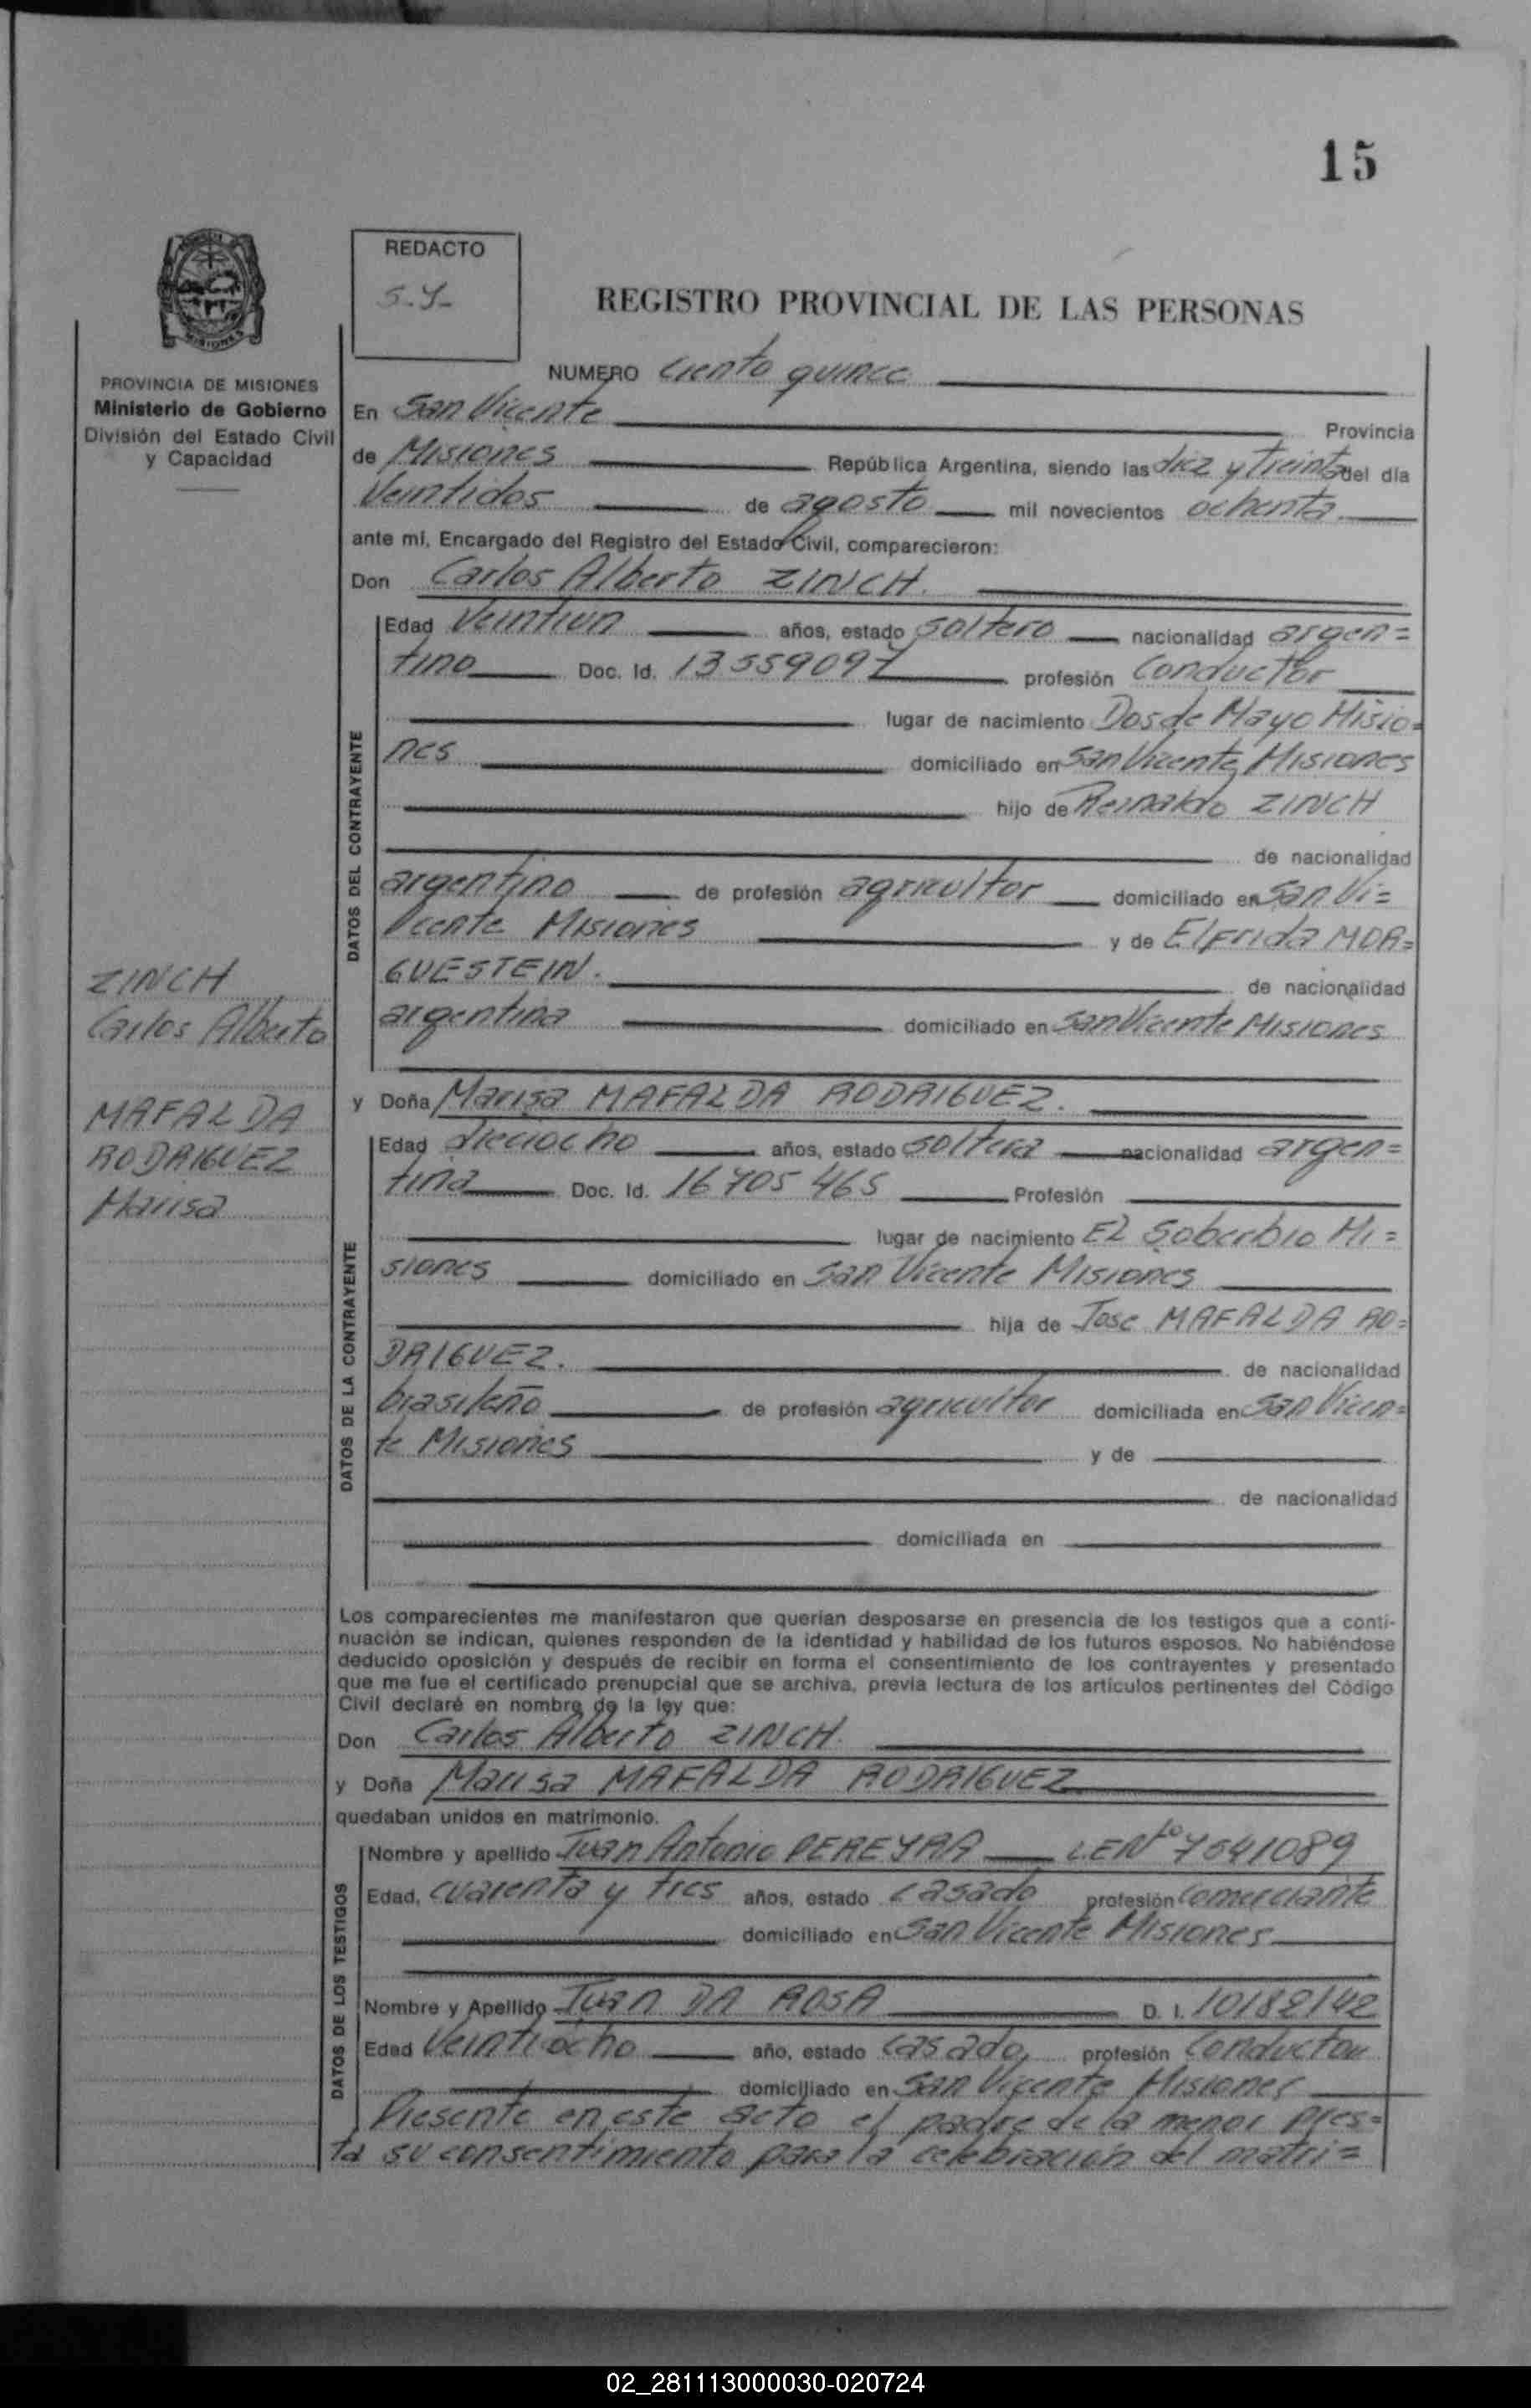 15
REDACTO
S.Y-
REGISTRO PROVINCIAL DE LAS PERSONAS
PROVINCIA DE MISIONES
Ministerio de Gobierno
División del Estado Civil
y Capacidad
NUMERO Ciento quince
En San Vicente Provincia
de Misiones República Argentina, siendo las diez y treinta del día
Veintidos de agosto mil novecientos ochenta
ante mí, Encargado del Registro del Estado Civil, comparecieron:
Don Carlos Alberto ZINCH.
DATOS DEL CONTRAYENTE
Edad Veintiun años, estado soltero nacionalidad argen=
tino Doc. Id. 13.559097 profesión Conductor
lugar de nacimiento Dos de Mayo Misio=
nes domiciliado en San Vicente Misiones
hijo de Reinaldo ZINCH
de nacionalidad
argentino de profesión agricultor domiciliado en San Vi=
cente Misiones y de Elfrida MOR=
GUESTEIN. de nacionalidad
argentina domiciliado en San Vicente Misiones
ZINCH
Carlos Alberto
MAFALDA
RODRIGUEZ
Marisa
y Doña Marisa MAFALDA RODRIGUEZ.
DATOS DE LA CONTRAYENTE
Edad dieciocho años, estado soltera nacionalidad argen=
tina Doc. Id. 16705465 Profesión
lugar de nacimiento El Soberbio Mi=
siones domiciliado en San Vicente Misiones
hija de Jose MAFALDA RO=
DRIGUEZ. de nacionalidad
brasileño de profesión agricultor domiciliada en San Vicen=
te Misiones y de
de nacionalidad
domiciliada en
Los comparecientes me manifestaron que querían desposarse en presencia de los testigos que a conti-
nuación se indican, quienes responden de la identidad y habilidad de los futuros esposos. No habiéndose
deducido oposición y después de recibir en forma el consentimiento de los contrayentes y presentado
que me fue el certificado prenupcial que se archiva, previa lectura de los artículos pertinentes del Código
Civil declaré en nombre de la ley que:
Don Carlos Alberto ZINCH.
y Doña Marisa MAFALDA RODRIGUEZ
quedaban unidos en matrimonio.
DATOS DE LOS TESTIGOS
Nombre y apellido Juan Antonio PEREYRA LEN° 7541089
Edad, cuarenta y tres años, estado casado profesión comerciante
domiciliado en San Vicente Misiones
Nombre y Apellido Juan DA ROSA D. I. 10182142
Edad Veintiocho año, estado casado profesión Conductor
domiciliado en San Vicente Misiones
Presente en este acto el padre de la menor pres=
ta su consentimiento para la celebración del matri=
02_281113000030-020724